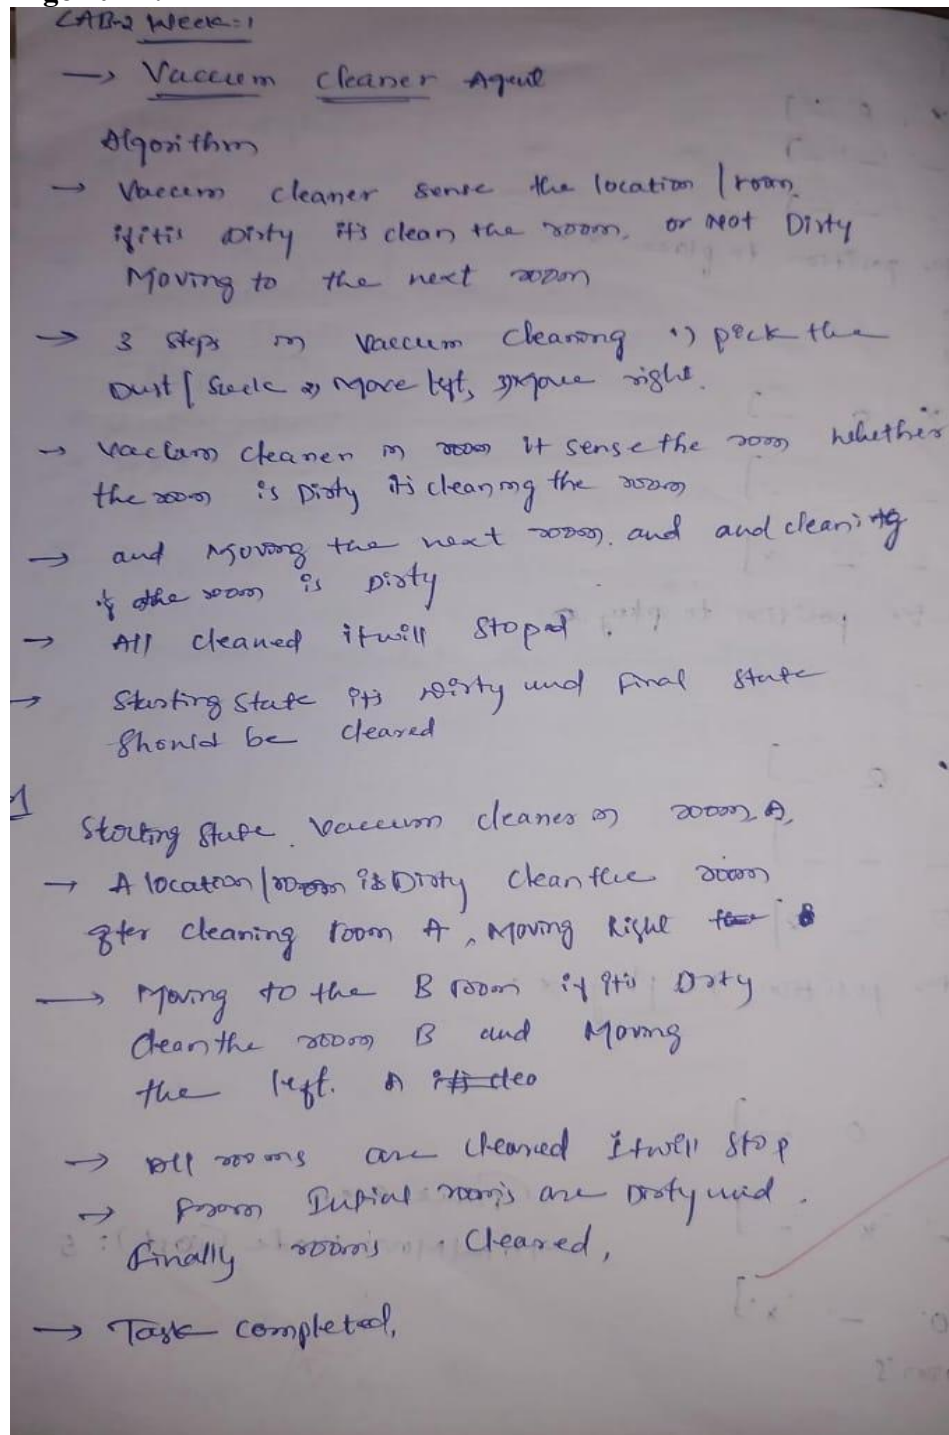 LAB-2 Week:1
→ Vaccum cleaner Agent
Algorithm
→ Vaccum cleaner sense the location / room.
if it is Dirty it's clean the room. or Not Dirty
Moving to the next room
→ 3 steps in Vaccum cleaning 1) pick the
Dust / Suck 2) Move left, 3) Move right.
→ Vaccum cleaner in room it sense the room whether
the room is Dirty its cleaning the room
→ and Moving the next room. and and cleaning
if the room is Dirty
→ All cleaned it will Stoped.
→ Starting State its Dirty and final state
Should be cleared
Starting State. Vaccum cleaner in room A,
→ A location / room is Dirty clean the room
after cleaning room A, Moving Right
→ Moving to the B room if it's Dirty
Clean the room B and Moving
the left.
→ All rooms are cleared It will Stop
→ From Initial rooms are Dirty and.
finally rooms Cleared,
→ Task completed,